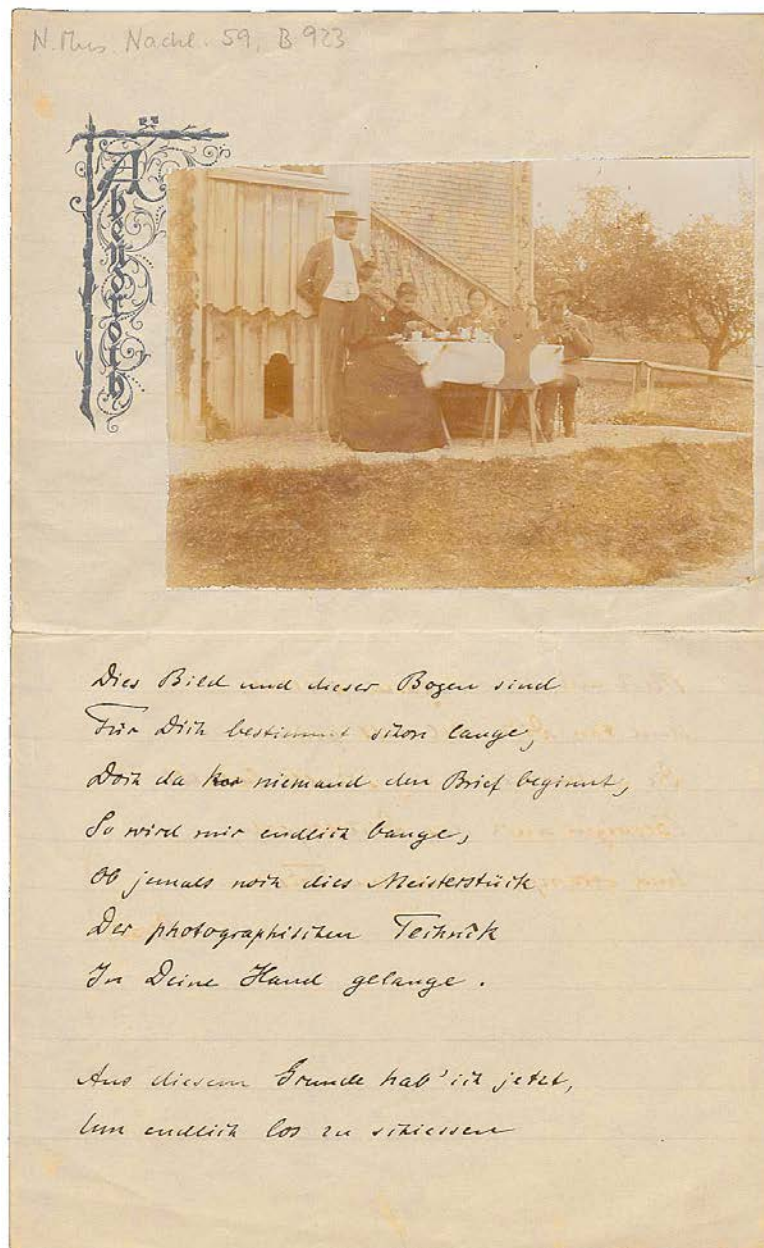 N. Mus. Nachl. 59, B 923
Abendroth
Dies Bild und dieser Bogen sind
Für Dich bestimmt schon lange,
Doch da niemand den Brief beginnt,
So wird mir endlich bange,
Ob jemals noch dies Meisterstück
Der photographischen Technik
In Deine Hand gelange.
Aus diesem Grunde hab' ich jetzt,
Um endlich los zu schiessen